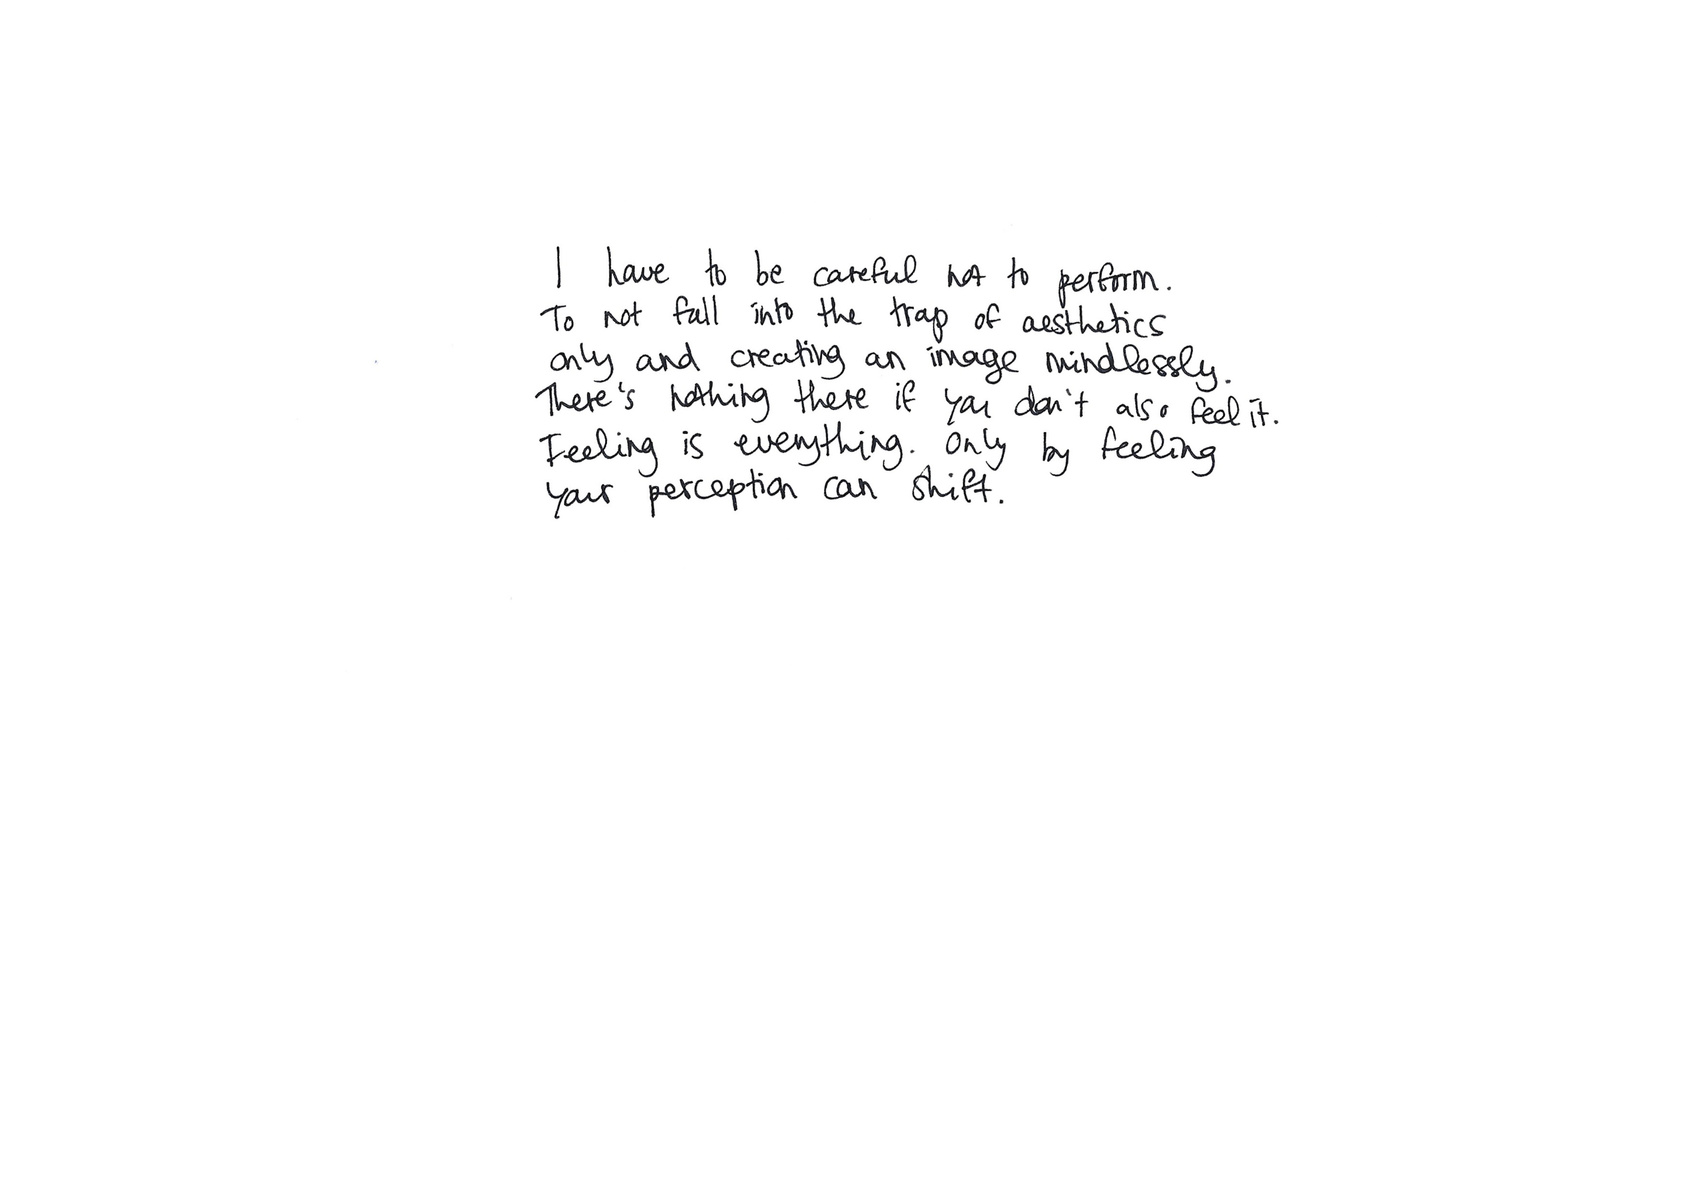 I have to be careful not to perform.
To not fall into the trap of aesthetics
only and creating an image mindlessly.
There's nothing there if you don't also feel it.
Feeling is everything. Only by feeling
your perception can shift.